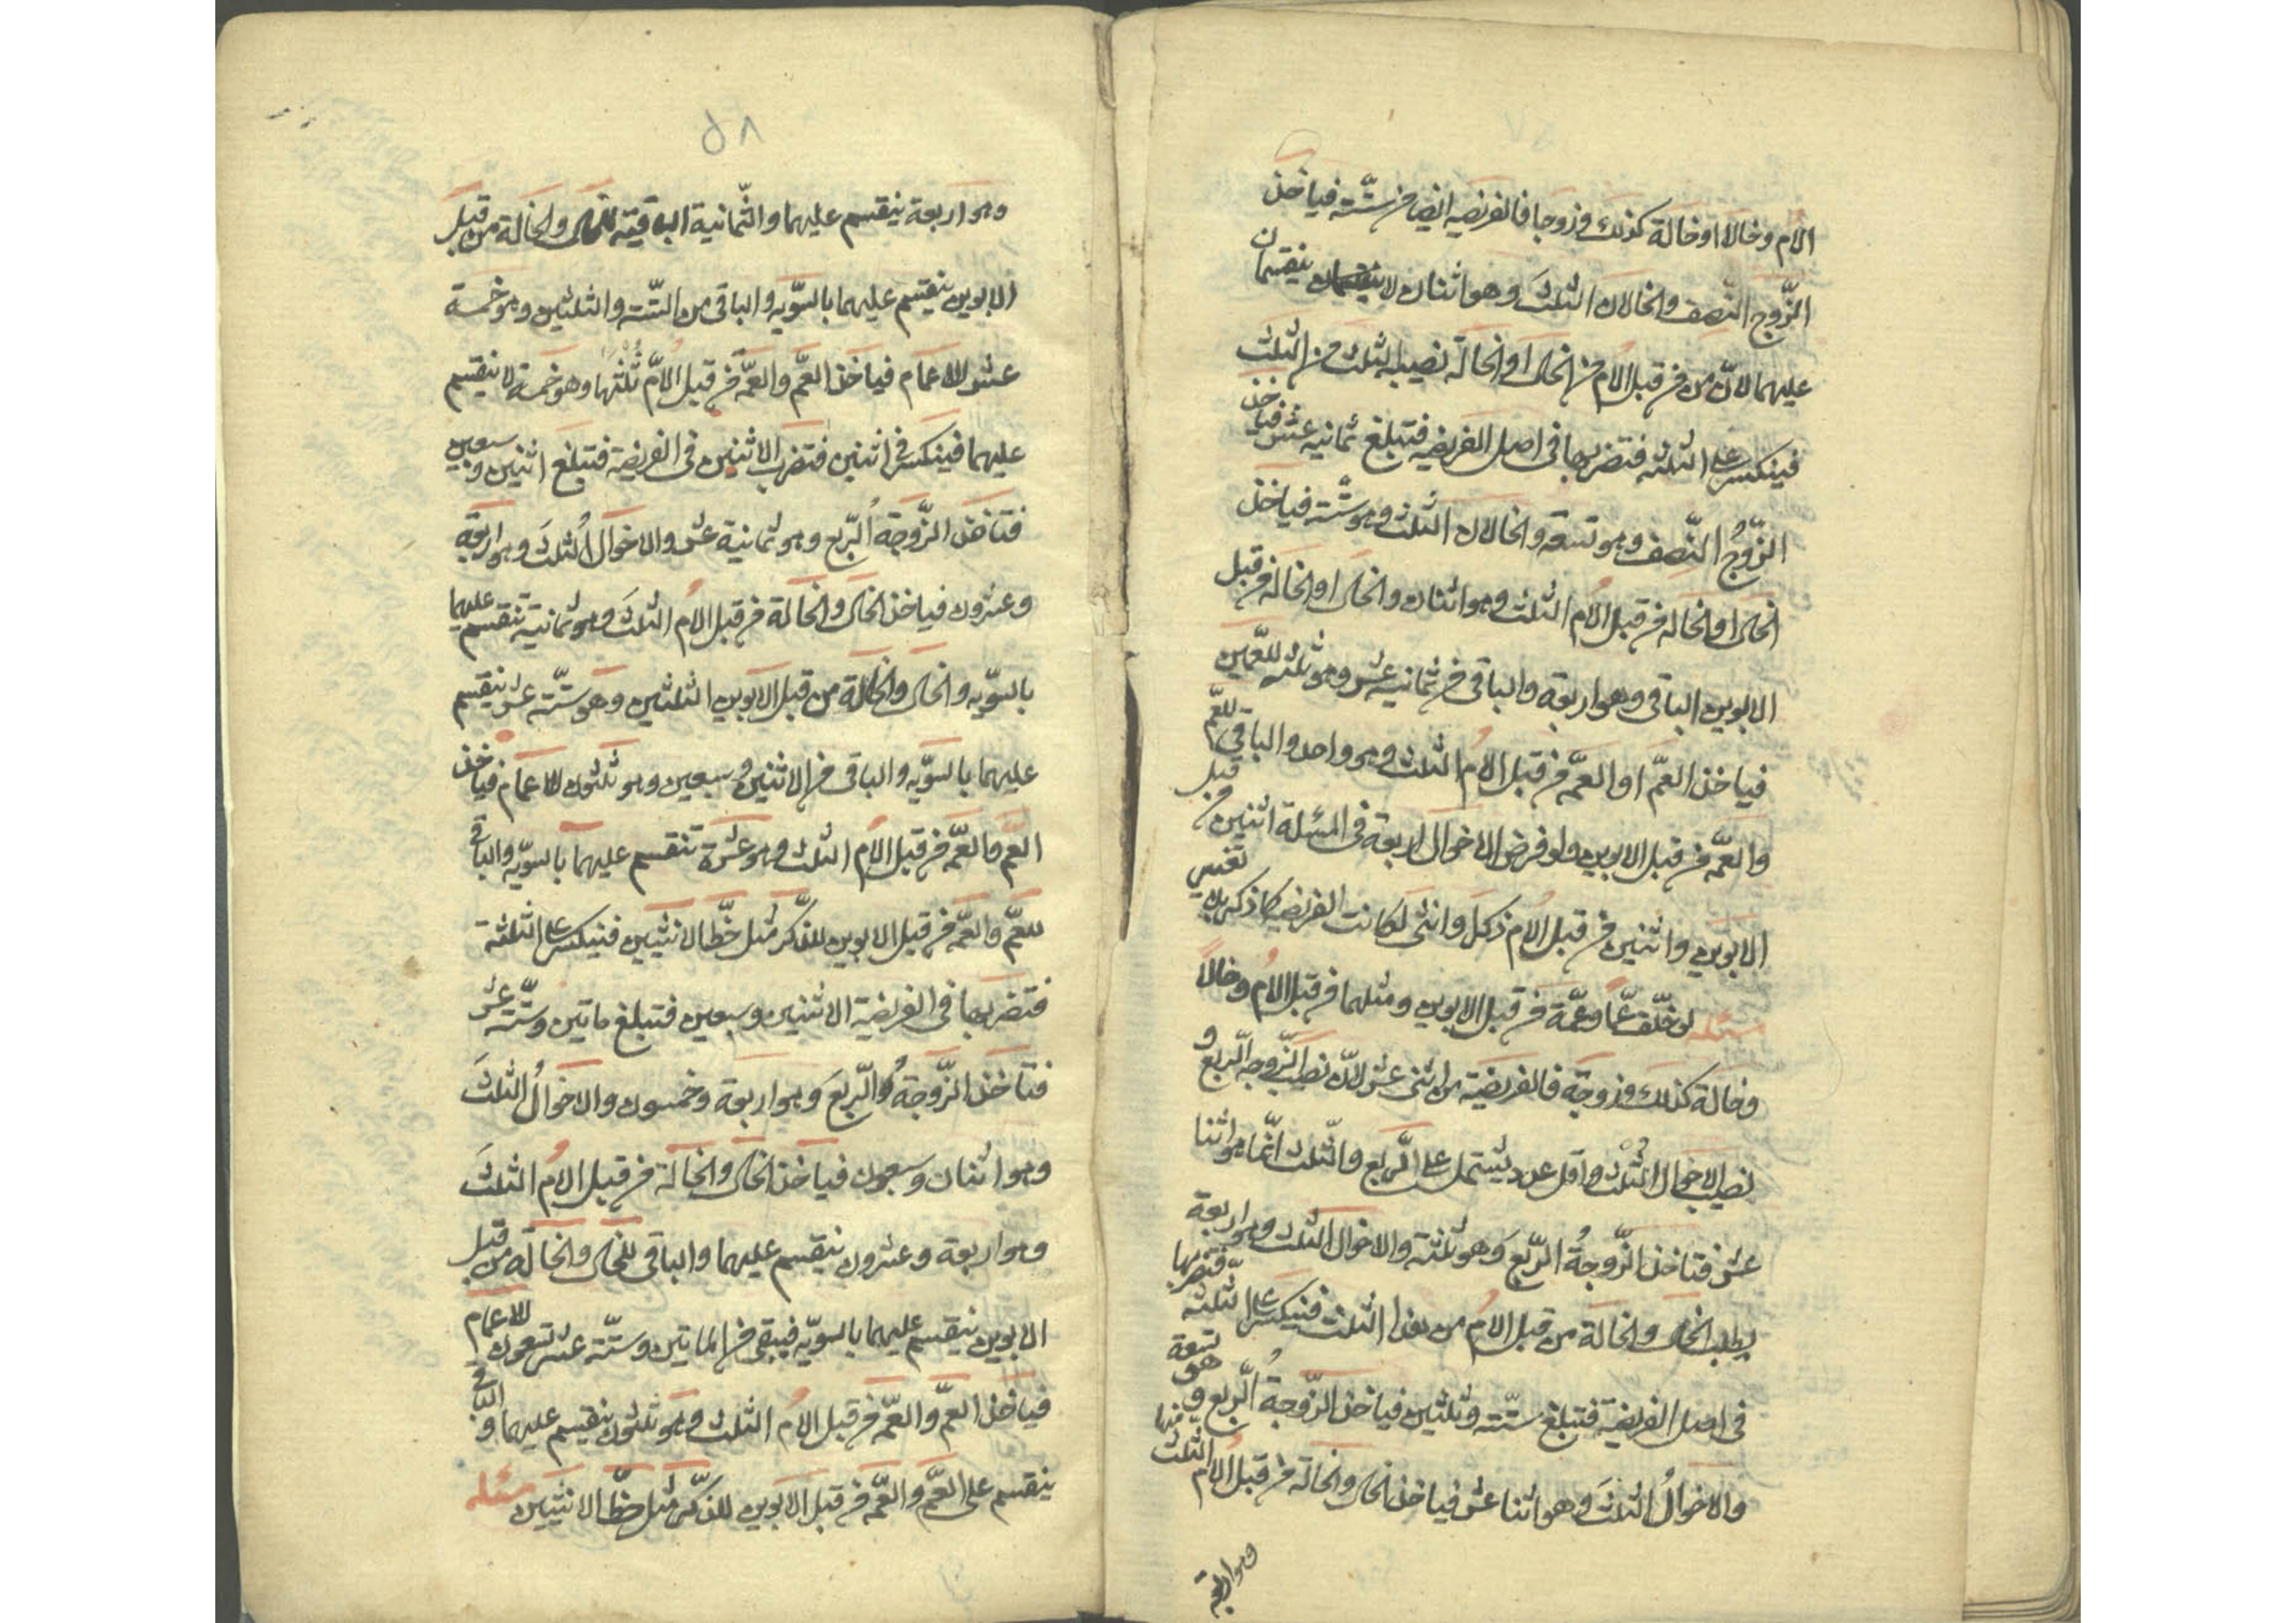 الأم وخالا او خالة كذلك وزوجا فالفريضه ايضا من ستّة فياخذ
الزّوج النّصف والخالان الثلثَ وهو اثنان لا ينقسمان
عليهما لانّ من من قبل الأم من الخال او الخالة نصيبه ثلث من الثلث
فينكسر على الثلثه فتضربها فى اصل الفريضه فتبلغ ثمانيه عشر فياخذ
الزّوجُ النّصف وهو تسعة والخالان الثلث وهو ستّة فياخذ
الخال او الخاله من قبل الأم الثلث وهو اثنان والخال او الخالة من قبل
الابوين الباقى وهو اربعة والباقى من ثمانيه عشر وهو ثلثه للعمّين
فياخذ العمّ او العمّه من قبل الأم الثلث وهو واحد والباقي للعم
والعمّه من قبل الابوين ولو فرض الاخوال اربعة فى المسئلة اثنين من قبل
الابوين واثنين من قبل الأم ذكر وانثى لكانت الفريضه كما ذكر بلا تغيير
مسئله لو خلّف عمّاً وعمّة من قبل الابوين ومثلهما من قبل الأم وخالاً
وخالة كذلك وزوجة فالفريضة من اثنى عشر لانّ نصيب الزّوجه الرّبع و
نصيب الاخوال الثُلث واقل عدد يشتمل على الرّبع والثّلث انّما هو اثنا
عشر فتاخذ الزّوجةُ الرّبعَ وهو ثلثة والاخوال الثلث وهو اربعة
يطلب الخال والخالة من قبل الأم من هذا الثلث فينكسر على الثلثه فتضربها
فى اصل الفريضة فتبلغ ستّة وثلثين فياخذ الزّوجةُ الرّبع وهو تسعة
والاخوالُ الثلثَ وهو اثنا عشر فياخذ الخال والخالة من قبل الأم الثلث منها
وهو اربعة
٥٨
وهو اربعة ينقسم عليهما والثّمانية الباقية للخال والخالة من قبل
الابوين ينقسم عليهما بالسّويّه والباقى من الستّة والثلثين وهو خمسة
عشر للاعمام فياخذ العمّ والعمّة من قبل الأمّ ثُلثها وهو خمسة لا ينقسم
عليهما فينكسر فى اثنين فتضرب الاثنين فى الفريضة فتبلغ اثنين وسبعين
فتاخذ الزّوجة الرّبع وهو ثمانية عشر والاخوال الثلثَ وهو اربعة
وعشرون فياخذ الخال والخالة من قبل الأم الثلثَ وهو ثمانية تنقسم عليهما
بالسّويّه والخال والخالة من قبل الابوين الثلثين وهو ستّة عشر ينقسم
عليهما بالسّويّه والباقى من الاثنين وسبعين وهو ثلثون للاعمام فياخذ
العمّ والعمّه من قبل الأم الثلث وهو عشرة تنقسم عليهما بالسّويّه والباقى
للعمّ والعمّه من قبل الابوين للذّكر مثل حظّ الانثيين فينكسر على الثلثة
فتضربها فى الفريضة الاثنين وسبعين فتبلغ ماتين وستّه عشر
فتاخذ الزّوجةُ الرّبعَ وهو اربعة وخمسون والاخوالُ الثلثَ
وهو اثنان وسبعون فياخذ الخال والخالة من قبل الأم الثلثَ
وهو اربعة وعشرون ينقسم عليهما والباقى للخال والخالة من قبل
الابوين ينقسم عليهما بالسويّه فيبقى من الماتين وستّة عشر تسعون للاعمام
فياخذ العمّ والعمّه من قبل الأم الثلث وهو ثلثون ينقسم عليهما والباقى
ينقسم على العمّ والعمّه من قبل الابوين للذّكر مثل حظّ الانثيين مسئله